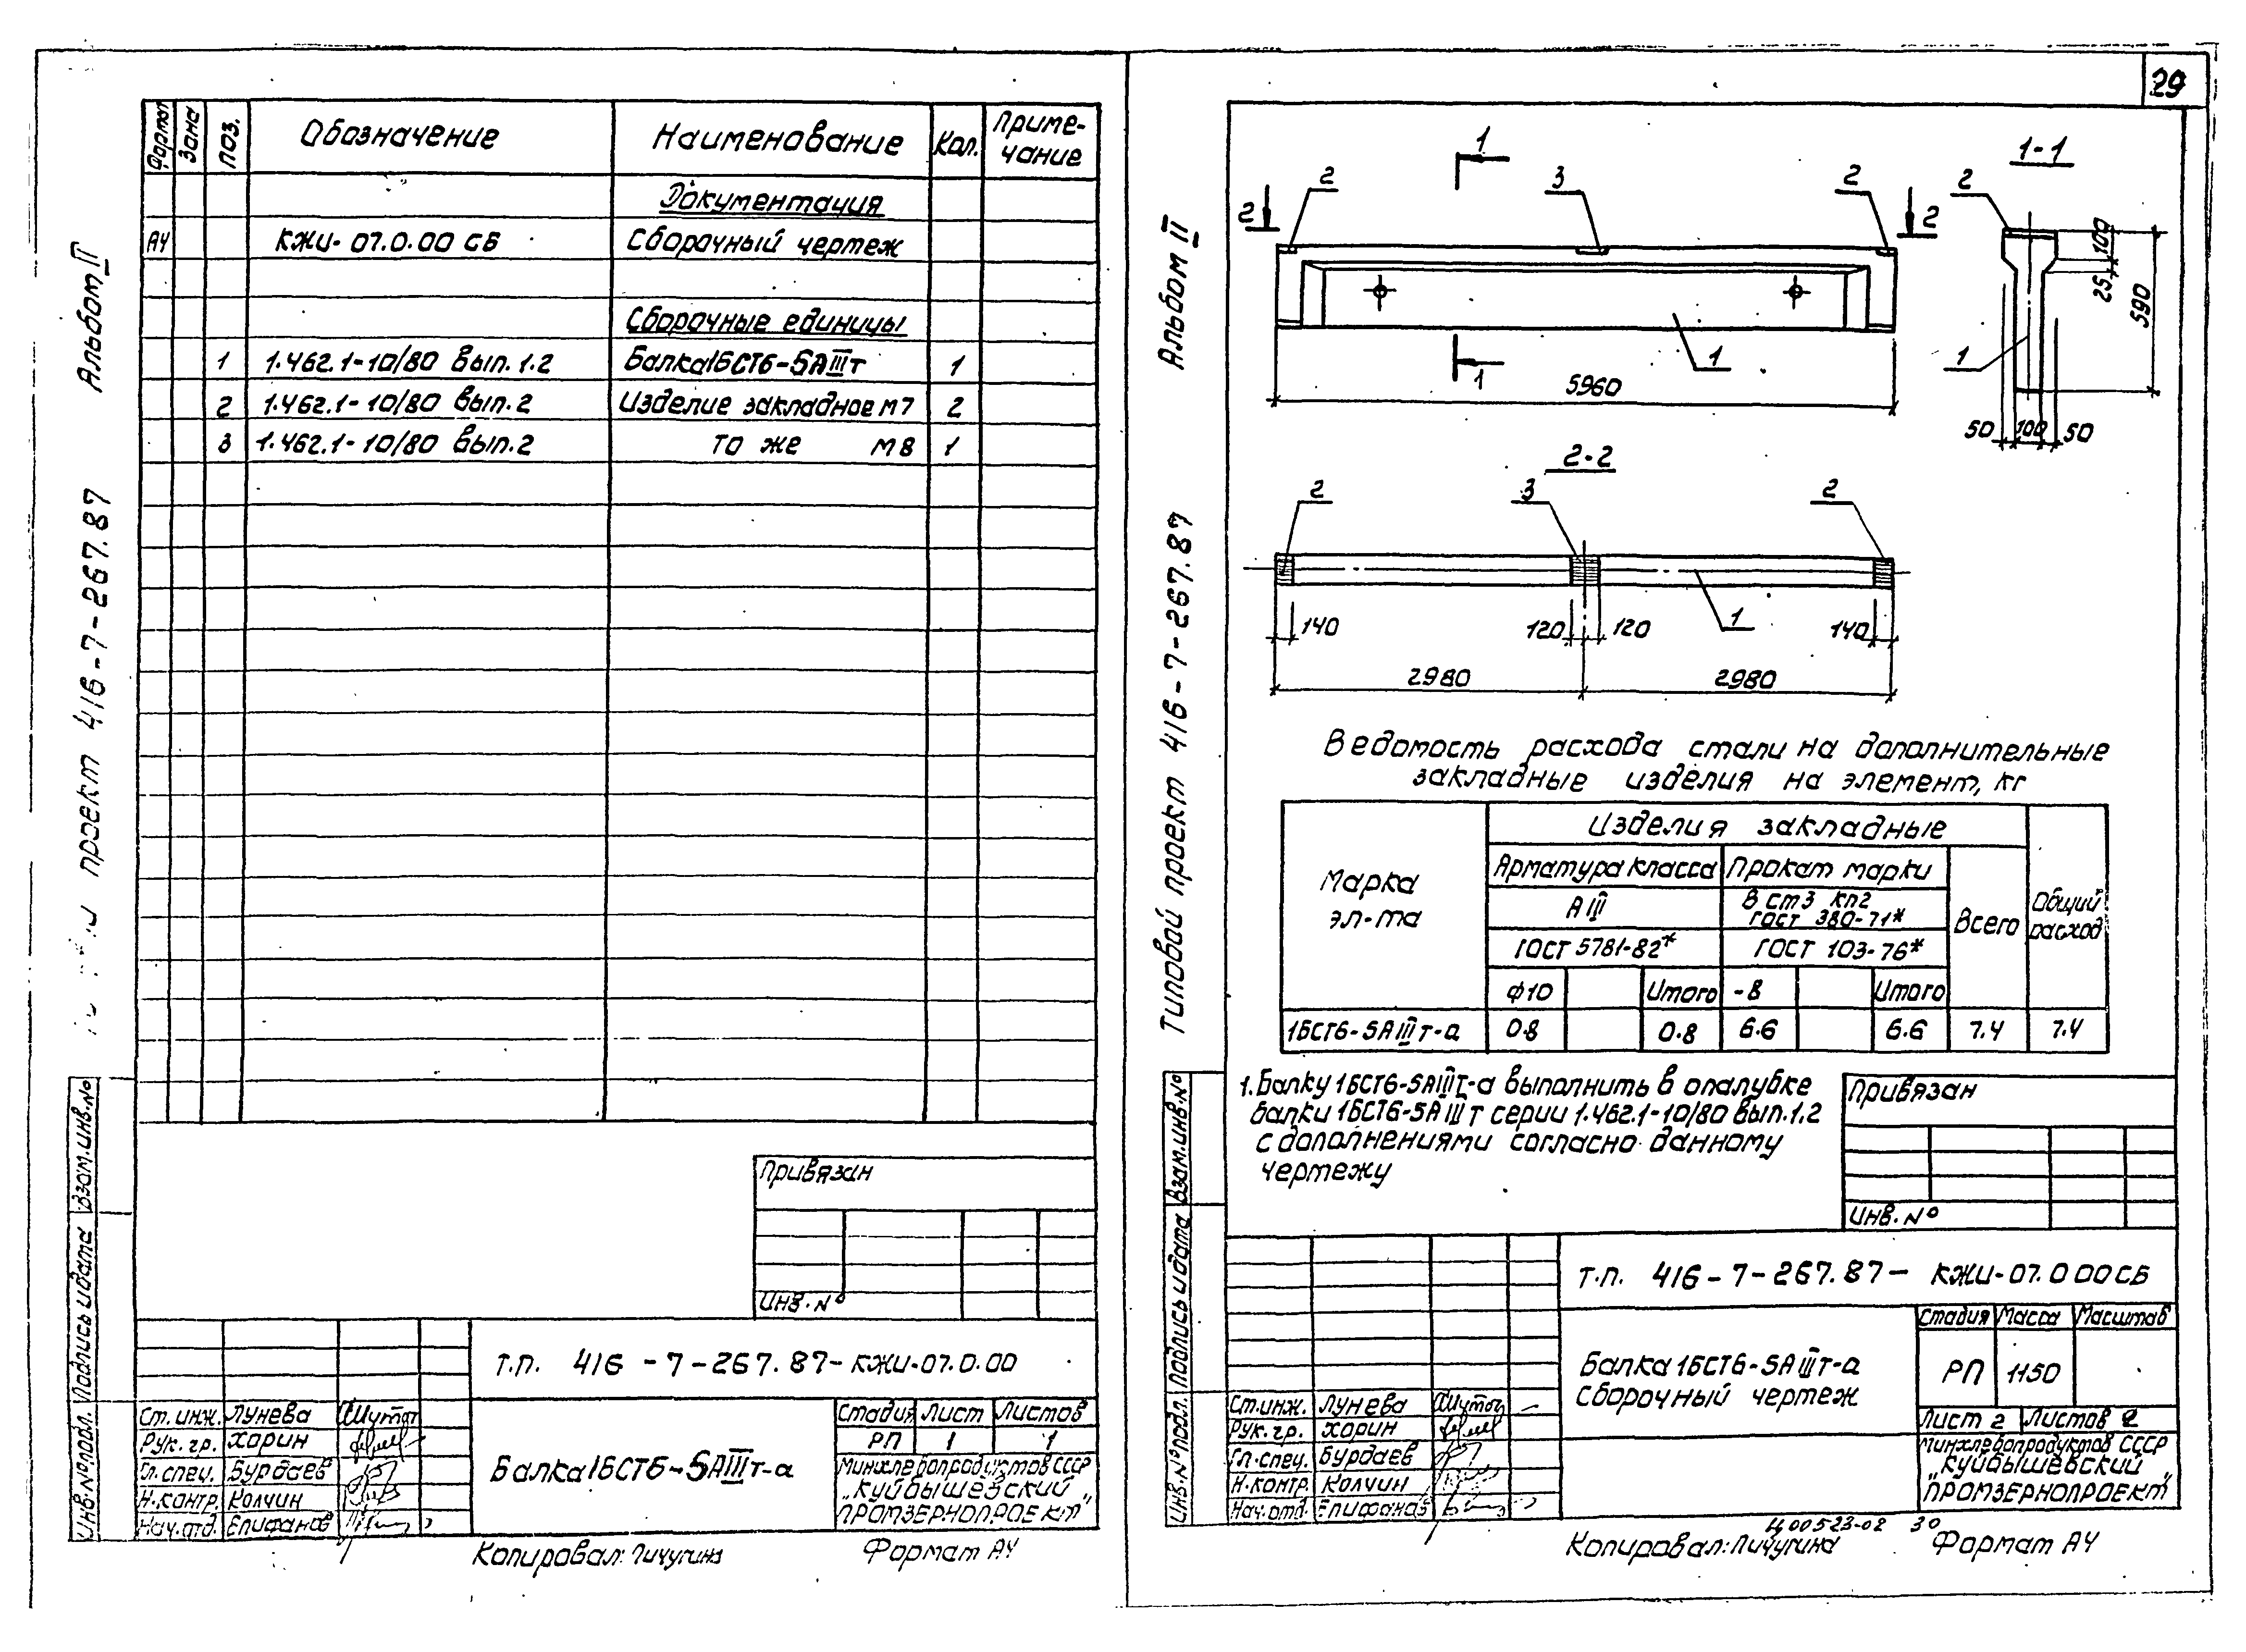 Альбом II
проект 416-7-267.87
Формат Зона Поз. Обозначение Наименование Кол. Примечание
Документация
А4 КЖИ-07.0.00 СБ Сборочный чертеж
Сборочные единицы
1 1.462.1-10/80 вып.1.2 Балка 1БСТ6-5АIIIт 1
2 1.462.1-10/80 вып.2 Изделие закладное М7 2
3 1.462.1-10/80 вып.2 То же М8 1
Привязан
Инв.№
Взам.инв.№
Подпись и дата
Инв.№подл.
Т.П. 416-7-267.87-КЖИ-07.0.00
Ст.инж. Лунева
Рук.гр. Харин
Гл.спец. Бурдаев
Н.контр. Колчин
Нач.отд. Епифанов
Балка 1БСТ6-5АIIIт-а
Стадия Лист Листов
РП 1 1
Минхлебопродуктов СССР
„Куйбышевский
Промзернопроект"
Копировал: Пичугина Формат А4
29
Альбом II
Типовой проект 416-7-267.87
1
2 3 2
2 2
1
1
5960
1-1
2
1
100
25
590
50 100 50
2-2
2 3 2
1
140 120 120 140
2980 2980
Ведомость расхода стали на дополнительные
закладные изделия на элемент, кг
Марка эл-та
Изделия закладные
Общий расход
Арматура класса Прокат марки
Всего
АIII
В ст3 кп2
ГОСТ 380-71*
ГОСТ 5781-82* ГОСТ 103-76*
Ф10 Итого -8 Итого
1БСТ6-5АIIIт-а 0.8 0.8 6.6 6.6 7.4 7.4
1. Балку 1БСТ6-5АIIIт-а выполнить в опалубке
балки 1БСТ6-5АIIIт серии 1.462.1-10/80 вып.1.2
с дополнениями согласно данному
чертежу
Привязан
Инв.№
Взам.инв.№
Подпись и дата
Инв.№подл.
Т.П. 416-7-267.87- КЖИ-07.0 00СБ
Ст.инж. Лунева
Рук.гр. Харин
Гл.спец. Бурдаев
Н.контр. Колчин
Нач.отд. Епифанов
Балка 1БСТ6-5АIIIт-а
сборочный чертеж
Стадия Масса Масштаб
РП 1150
Лист 2 Листов 2
Минхлебопродуктов СССР
„Куйбышевский
Промзернопроект"
Ц00523-02 30
Копировал: Пичугина Формат А4